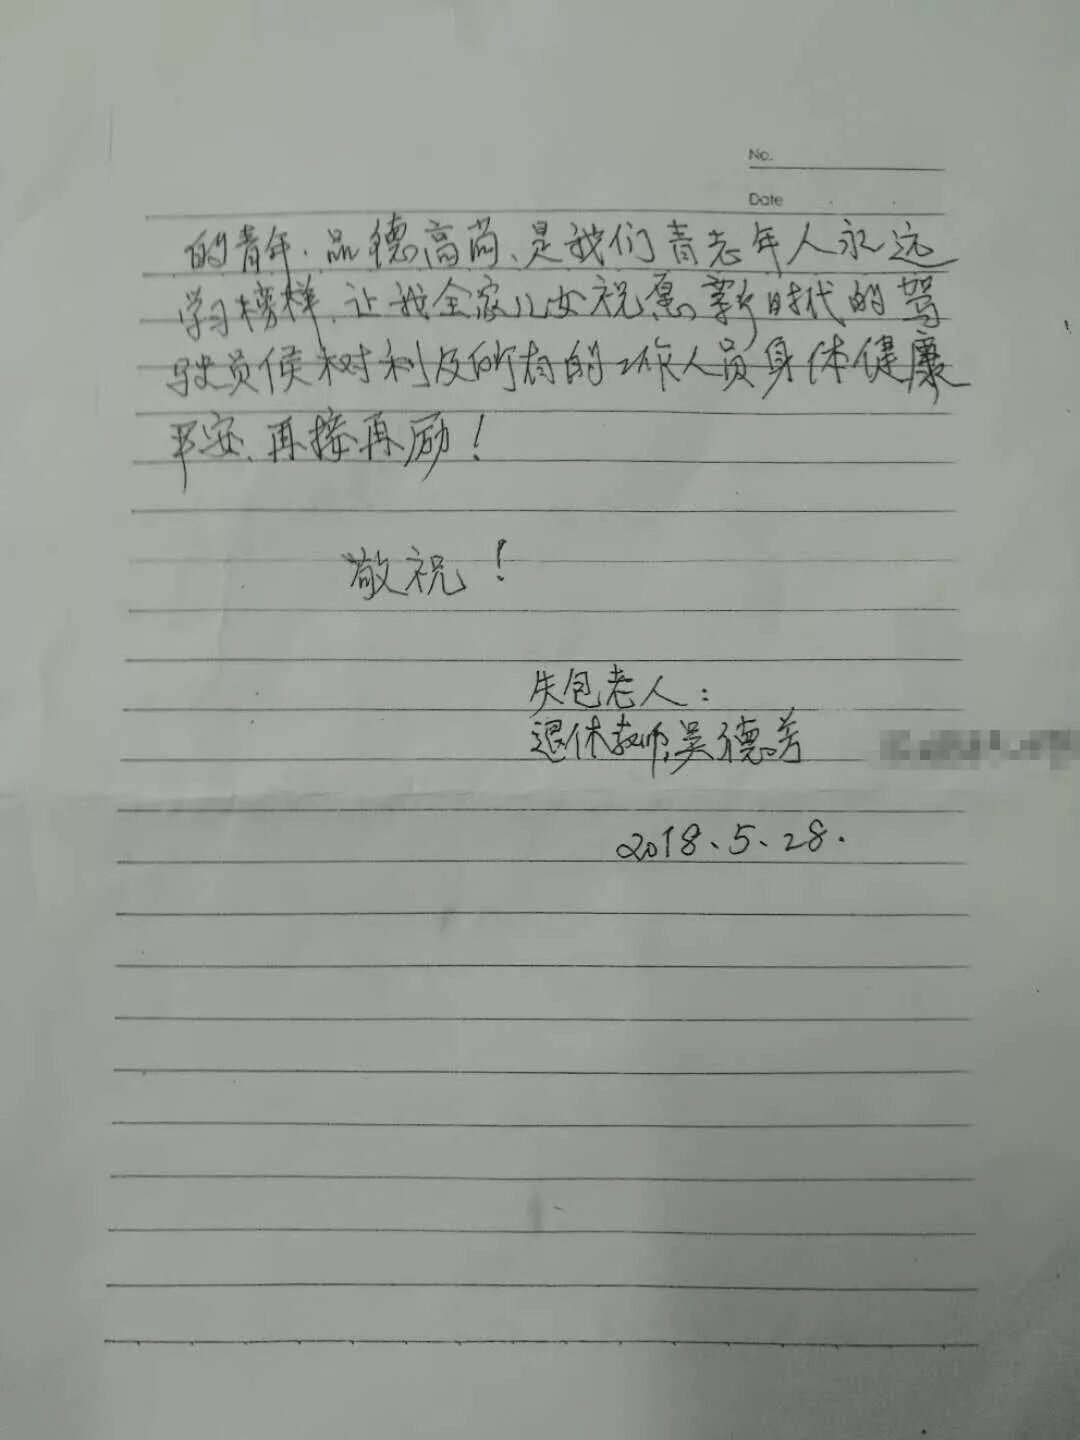 No.
Date
的青年、品德高尚、是我们青老年人永远
学习榜样、让我全家儿女祝愿新时代的驾
驶员侯树利及所有的工作人员身体健康
平安、再接再励！
敬祝！
失包老人：
退休教师吴德芳
2018、5、28.